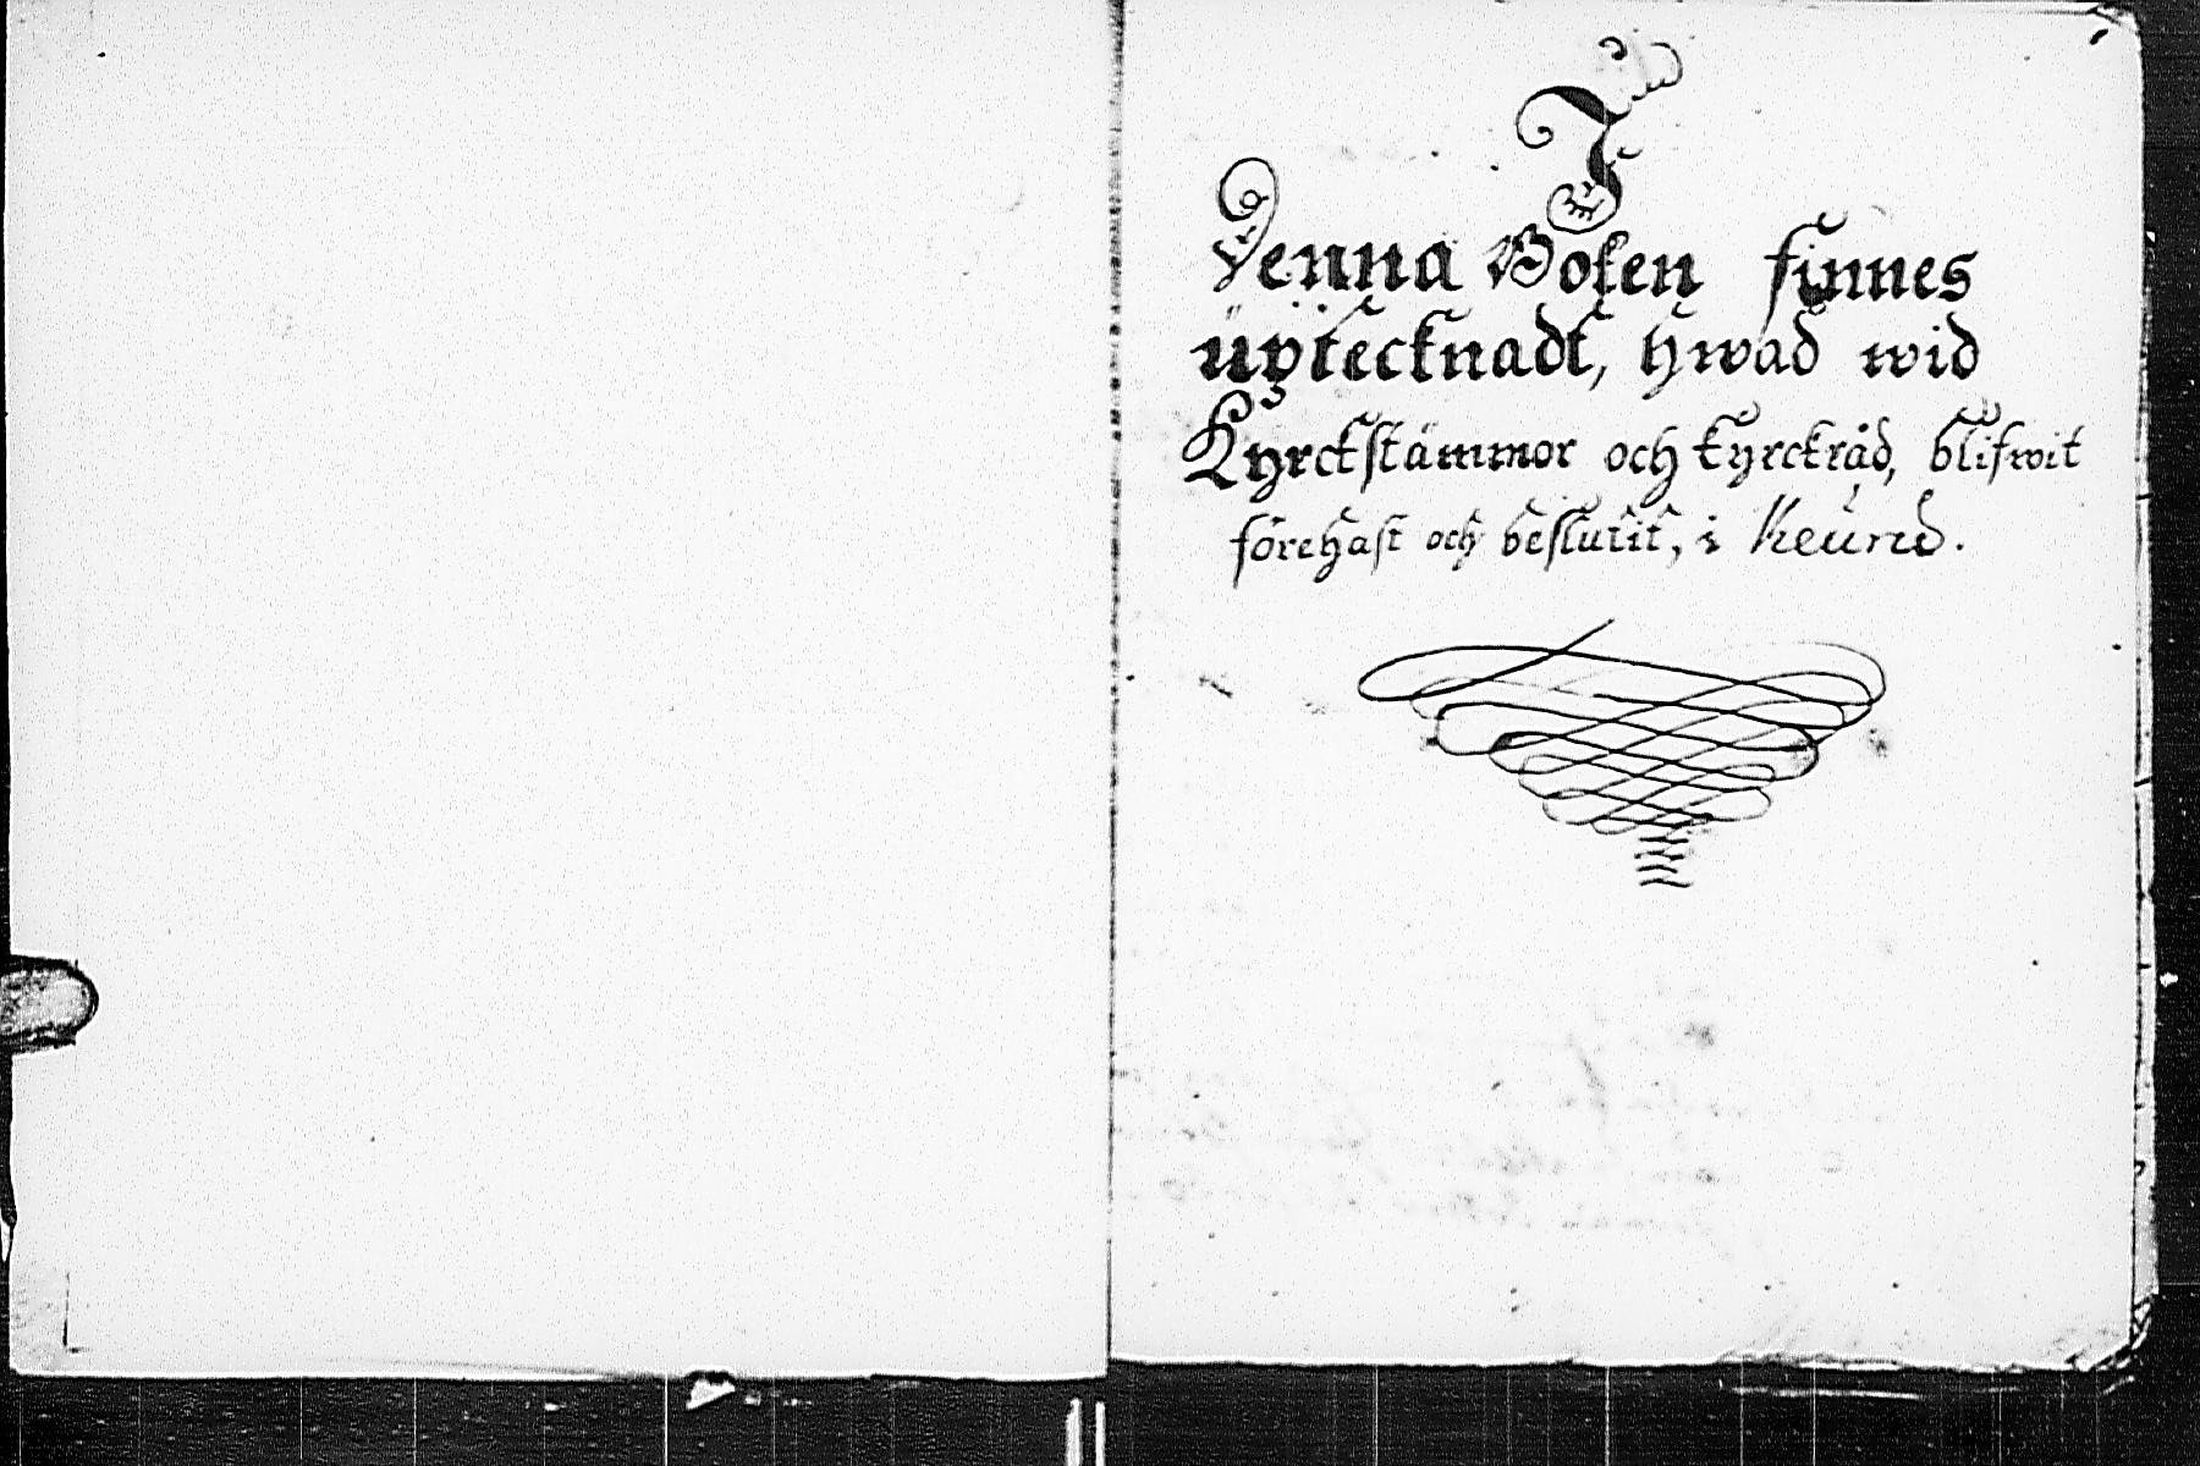 I
denna Boken finnes
üptecknadt, hwad wid
Kyrckstämmor och kyrckråd, blifwit
förehaft och beslutit, i Keürü.